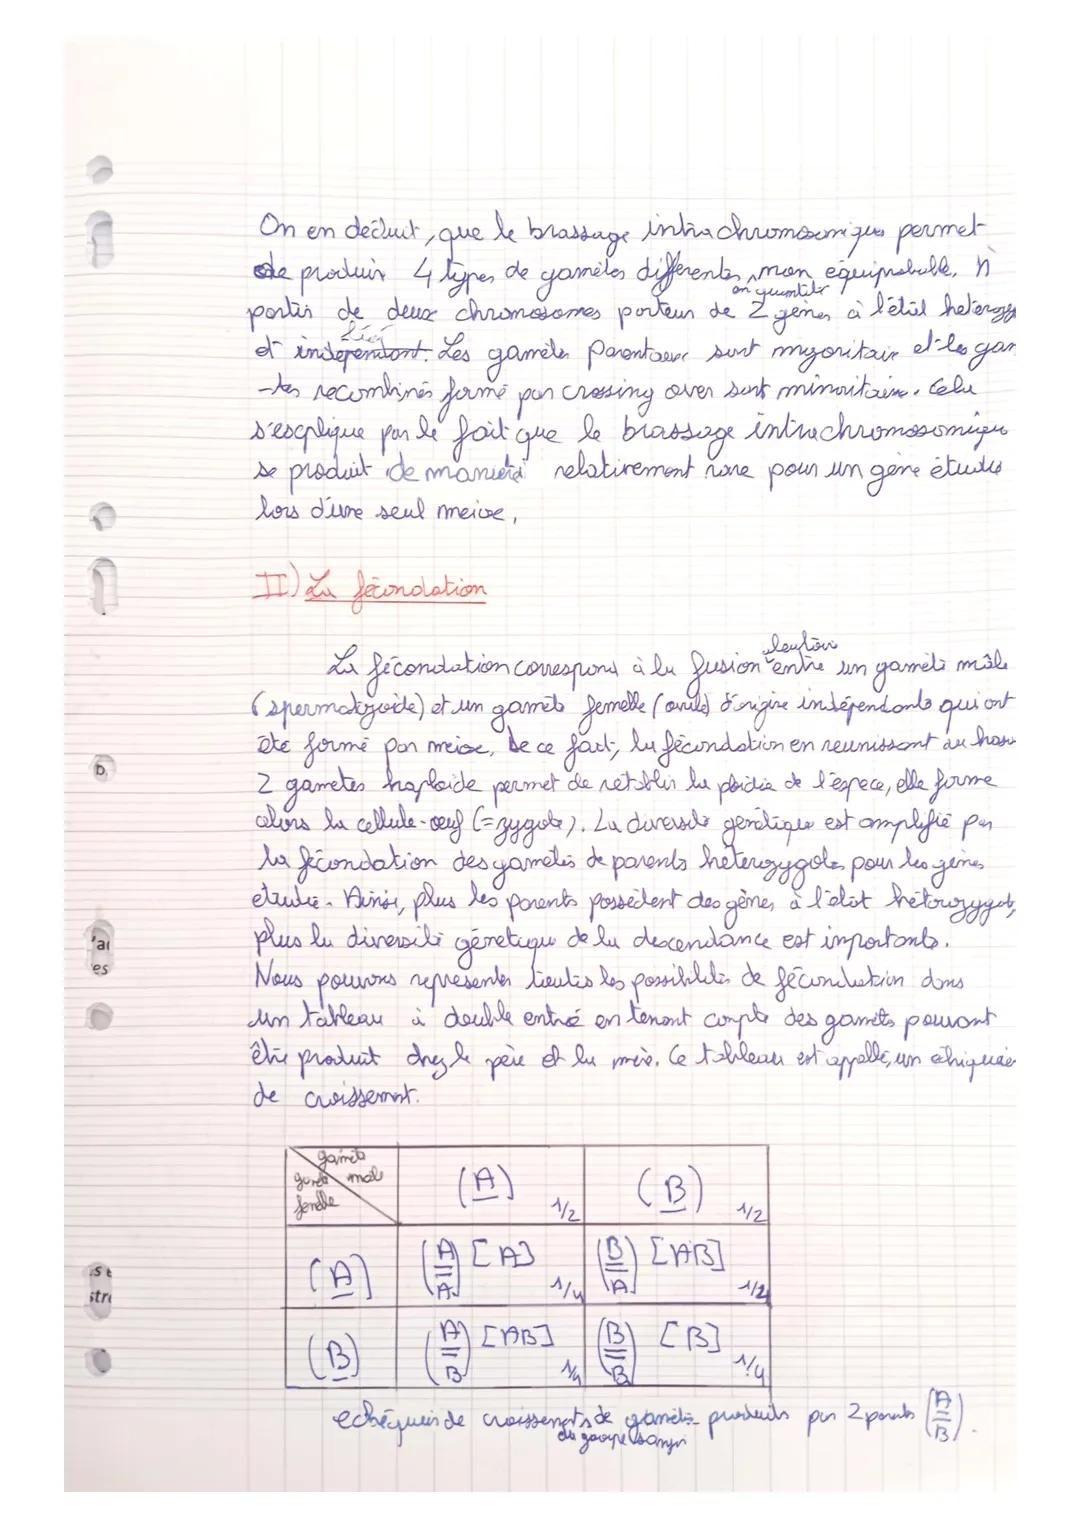 On en décluit, que le brassage intrachromosomiques permet
de produir 4 types de gamètes différentes, non équiprobable,
en quantité
partir de deux chromosomes porteur de 2 gènes à l'état hétérozy
liés
et indépendant. Les gamètes Parentaux sont majoritair et les gam
-tes recombinés formé par crossing over sont minoritaire. Cela
s'esxplique par le fait que le brassage intrachromosomique
se produit de manière relativement rare pour un gène étudié
lors d'une seul meiose,
II) La fécondation
La fécondation correspond à la fusion entre un gamète mâle
(spermatozoïde) et un gamète femelle (ovule) d'origine indépendante qui ont
été formé par meiose, De ce fait, la fécondation en réunissant au hasa
2 gametes haploïde permet de rétablir la ploïdie de l'espèce, elle forme
alors la cellule-oeuf (=zygote). La diversité génétique est amplifié par
la fécondation des gamètes de parents hétérozygotes pour les gènes
étudié. Ainsi, plus les parents possèdent des gènes à l'état hétérozygot,
plus la diversité génétique de la descendance est importante.
Nous pouvons représenter toutes les possibilités de fécondation dans
un tableau à double entré en tenant compte des gamètes pouvant
être produit chez le père et la mère. Ce tableau est appellé, un échiquier
de croissement.
gamète
mâle
gamète
femelle
(A) 1/2
(B) 1/2
(A)
(A/A) [A] 1/4
(B/A) [AB] 1/2
(B)
(A/B) [AB] 1/4
(B/B) [B] 1/4
echéquier de croissements de gamètes produits par 2 parents (A/B).
du groupe sanguin
b,
'ai
es
is t
stri